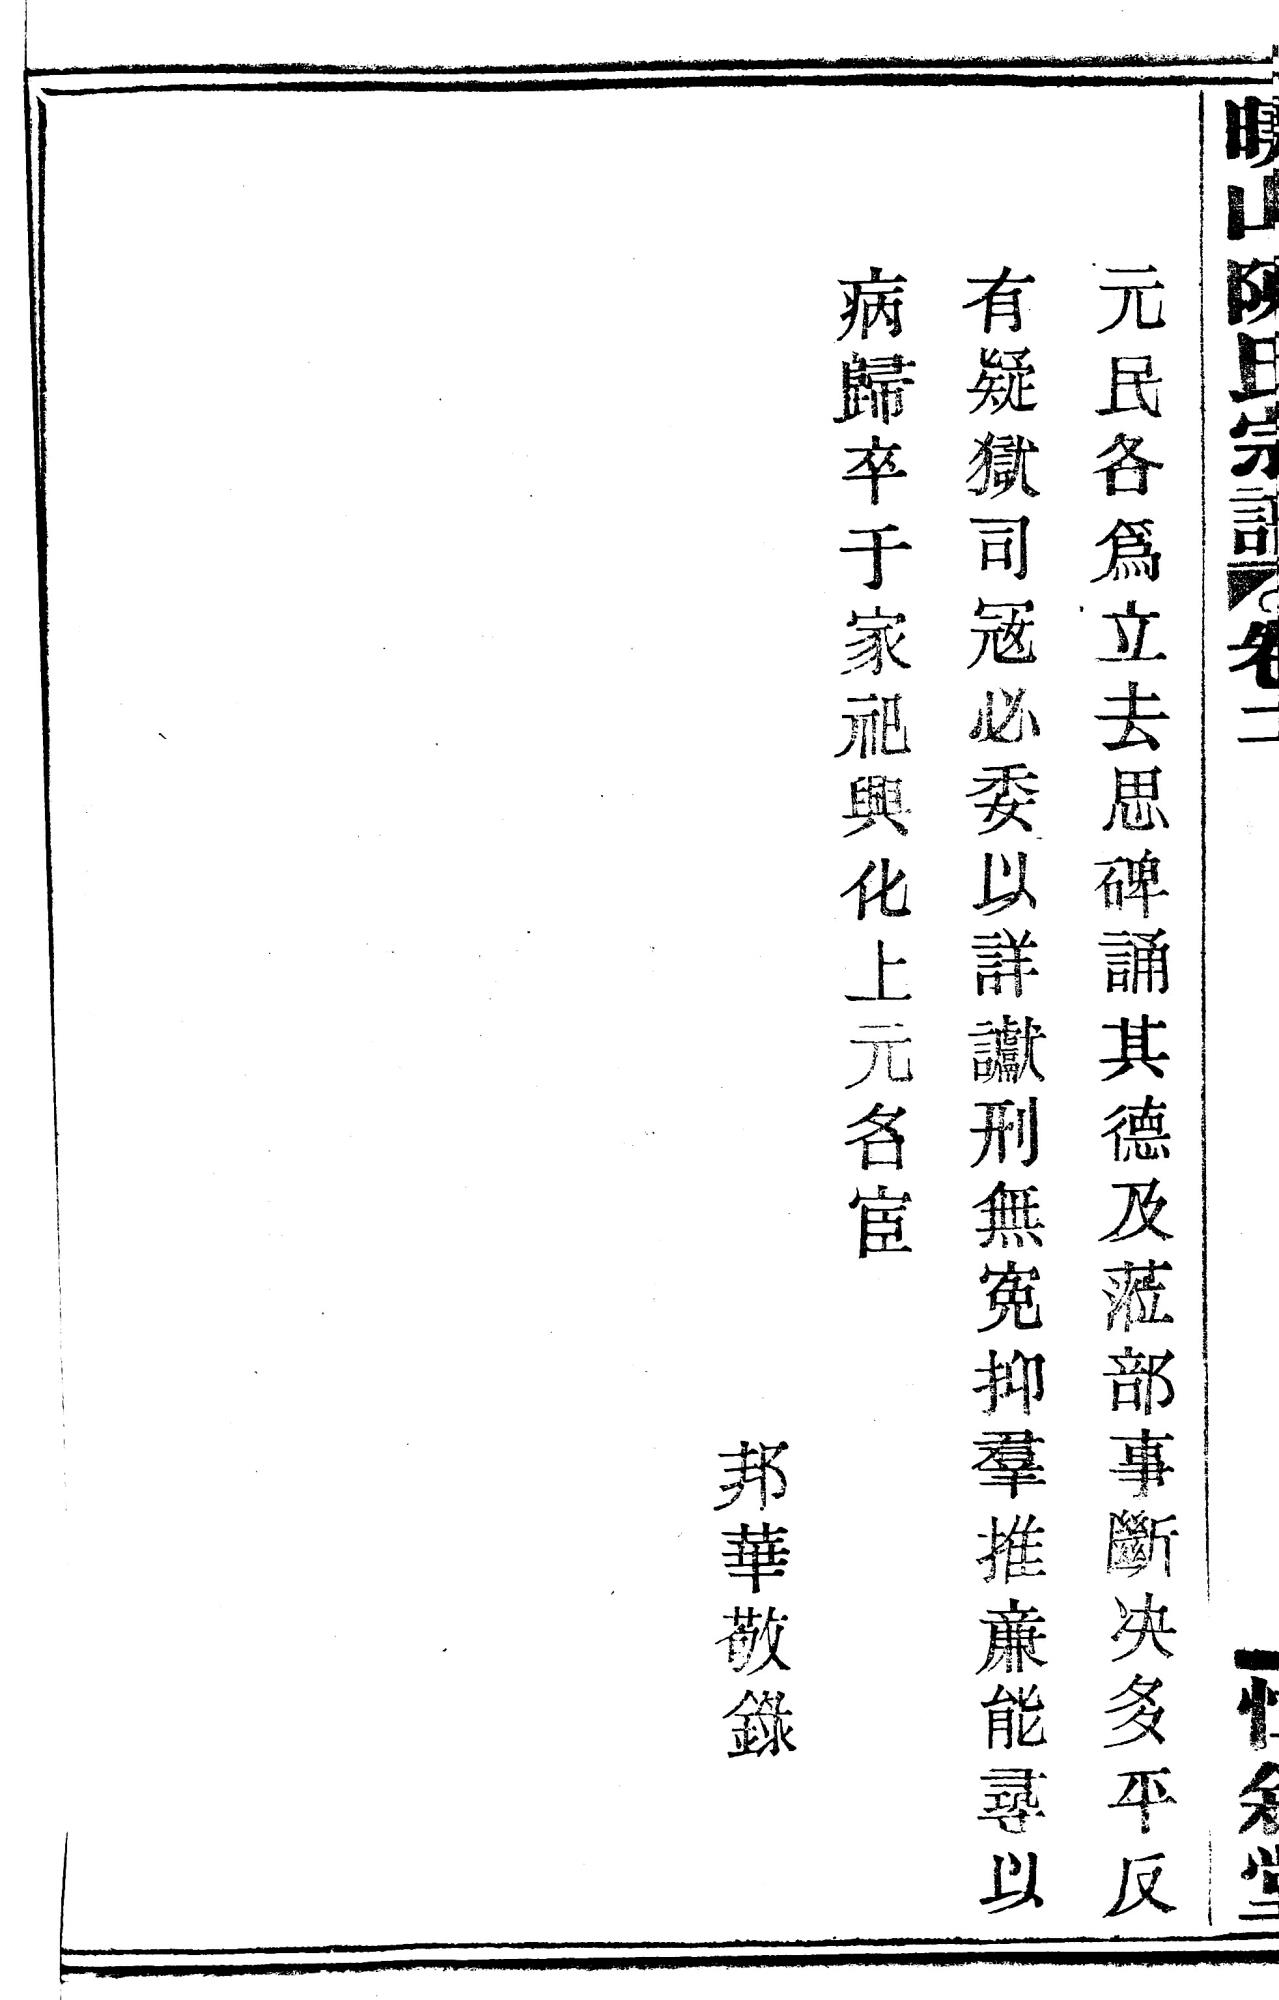 山陳氏宗譜 卷
元民各爲立去思碑誦其德及蒞部事斷决多平反
有疑獄司冦必委以詳讞刑無寃抑羣推廉能尋以
病歸卒于家祀興化上元名宦
邦華敬錄